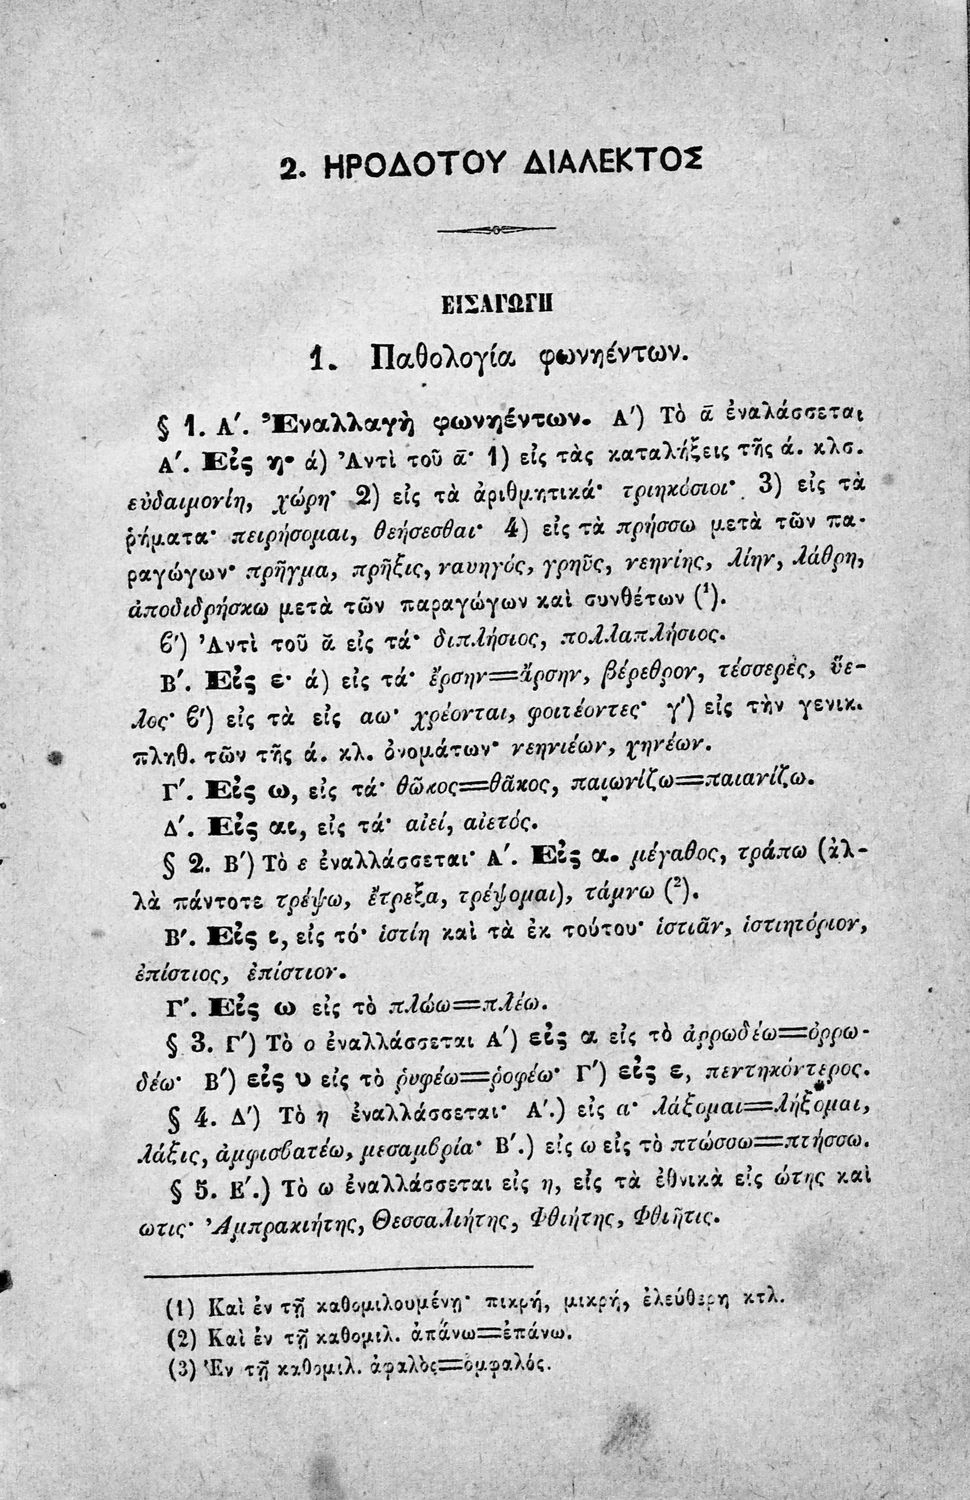 2. ΗΡΟΔΟΤΟΥ ΔΙΑΛΕΚΤΟΣ
ΕΙΣΑΓΩΓΗ
1. Παθολογία φωνηέντων.
§ 1. Α΄. Ἐναλλαγὴ φωνηέντων. Α΄) Τὸ ᾱ ἐναλάσσεται
Α΄. Εἰς η· ά) Ἀντὶ τοῦ ᾱ· 1) εἰς τὰς καταλήξεις τῆς ά. κλσ.
εὐδαιμονίη, χώρη· 2) εἰς τὰ ἀριθμητικά· τριηκόσιοι· 3) εἰς τὰ
ῥήματα· πειρήσομαι, θεήσεσθαι· 4) εἰς τὰ πρήσσω μετὰ τῶν πα-
ραγώγων· πρῆγμα, πρῆξις, ναυηγός, γρηῦς, νεηνίης, λίην, λάθρη,
ἀποδιδρήσκω μετὰ τῶν παραγώγων καὶ συνθέτων (¹).
ϐ΄) Ἀντὶ τοῦ ᾰ εἰς τά· διπλήσιος, πολλαπλήσιος.
Β΄. Εἰς ε· ά) εἰς τά· ἔρσην=ἄρσην, βέρεθρον, τέσσερες, ὕε-
λος· ϐ΄) εἰς τὰ εἰς αω· χρέονται, φοιτέοντες· γ΄) εἰς τὴν γενικ.
πληθ. τῶν τῆς ά. κλ. ὀνομάτων· νεηνιέων, χηνέων.
Γ΄. Εἰς ω, εἰς τά· θῶκος=θᾶκος, παιωνίζω=παιανίζω.
Δ΄. Εἰς αι, εἰς τά· αἰεί, αἰετός.
§ 2. Β΄) Τὸ ε ἐναλλάσσεται· Α΄. Εἰς α. μέγαθος, τράπω (ἀλ-
λὰ πάντοτε τρέψω, ἔτρεξα, τρέψομαι), τάμνω (²).
Β΄. Εἰς ι, εἰς τό· ἱστίη καὶ τὰ ἐκ τούτου· ἱστιᾶν, ἱστιητόριον,
ἐπίστιος, ἐπίστιον.
Γ΄. Εἰς ω εἰς τὸ πλώω=πλέω.
§ 3. Γ΄) Τὸ ο ἐναλλάσσεται Α΄) εἰς α εἰς τὸ ἀρρωδέω=ὀρρω-
δέω· Β΄) εἰς υ εἰς τὸ ῥυφέω=ῥοφέω· Γ΄) εἰς ε, πεντηκόντερος.
§ 4. Δ΄) Τὸ η ἐναλλάσσεται· Α΄.) εἰς α· λάξομαι=λήξομαι,
λάξις, ἀμφισϐατέω, μεσαμϐρία· Β΄.) εἰς ω εἰς τὸ πτώσσω=πτήσσω.
§ 5. Ε΄.) Τὸ ω ἐναλλάσσεται εἰς η, εἰς τὰ ἐθνικὰ εἰς ώτης καὶ
ωτις· Ἀμπρακιήτης, Θεσσαλιήτης, Φθιήτης, Φθιῆτις.
(1) Καὶ ἐν τῇ καθομιλουμένῃ· πικρή, μικρή, ἐλεύθερη κτλ.
(2) Καὶ ἐν τῇ καθομιλ. ἀπάνω=ἐπάνω.
(3) Ἐν τῇ καθομιλ. ἀφαλὸς=ὀμφαλός.